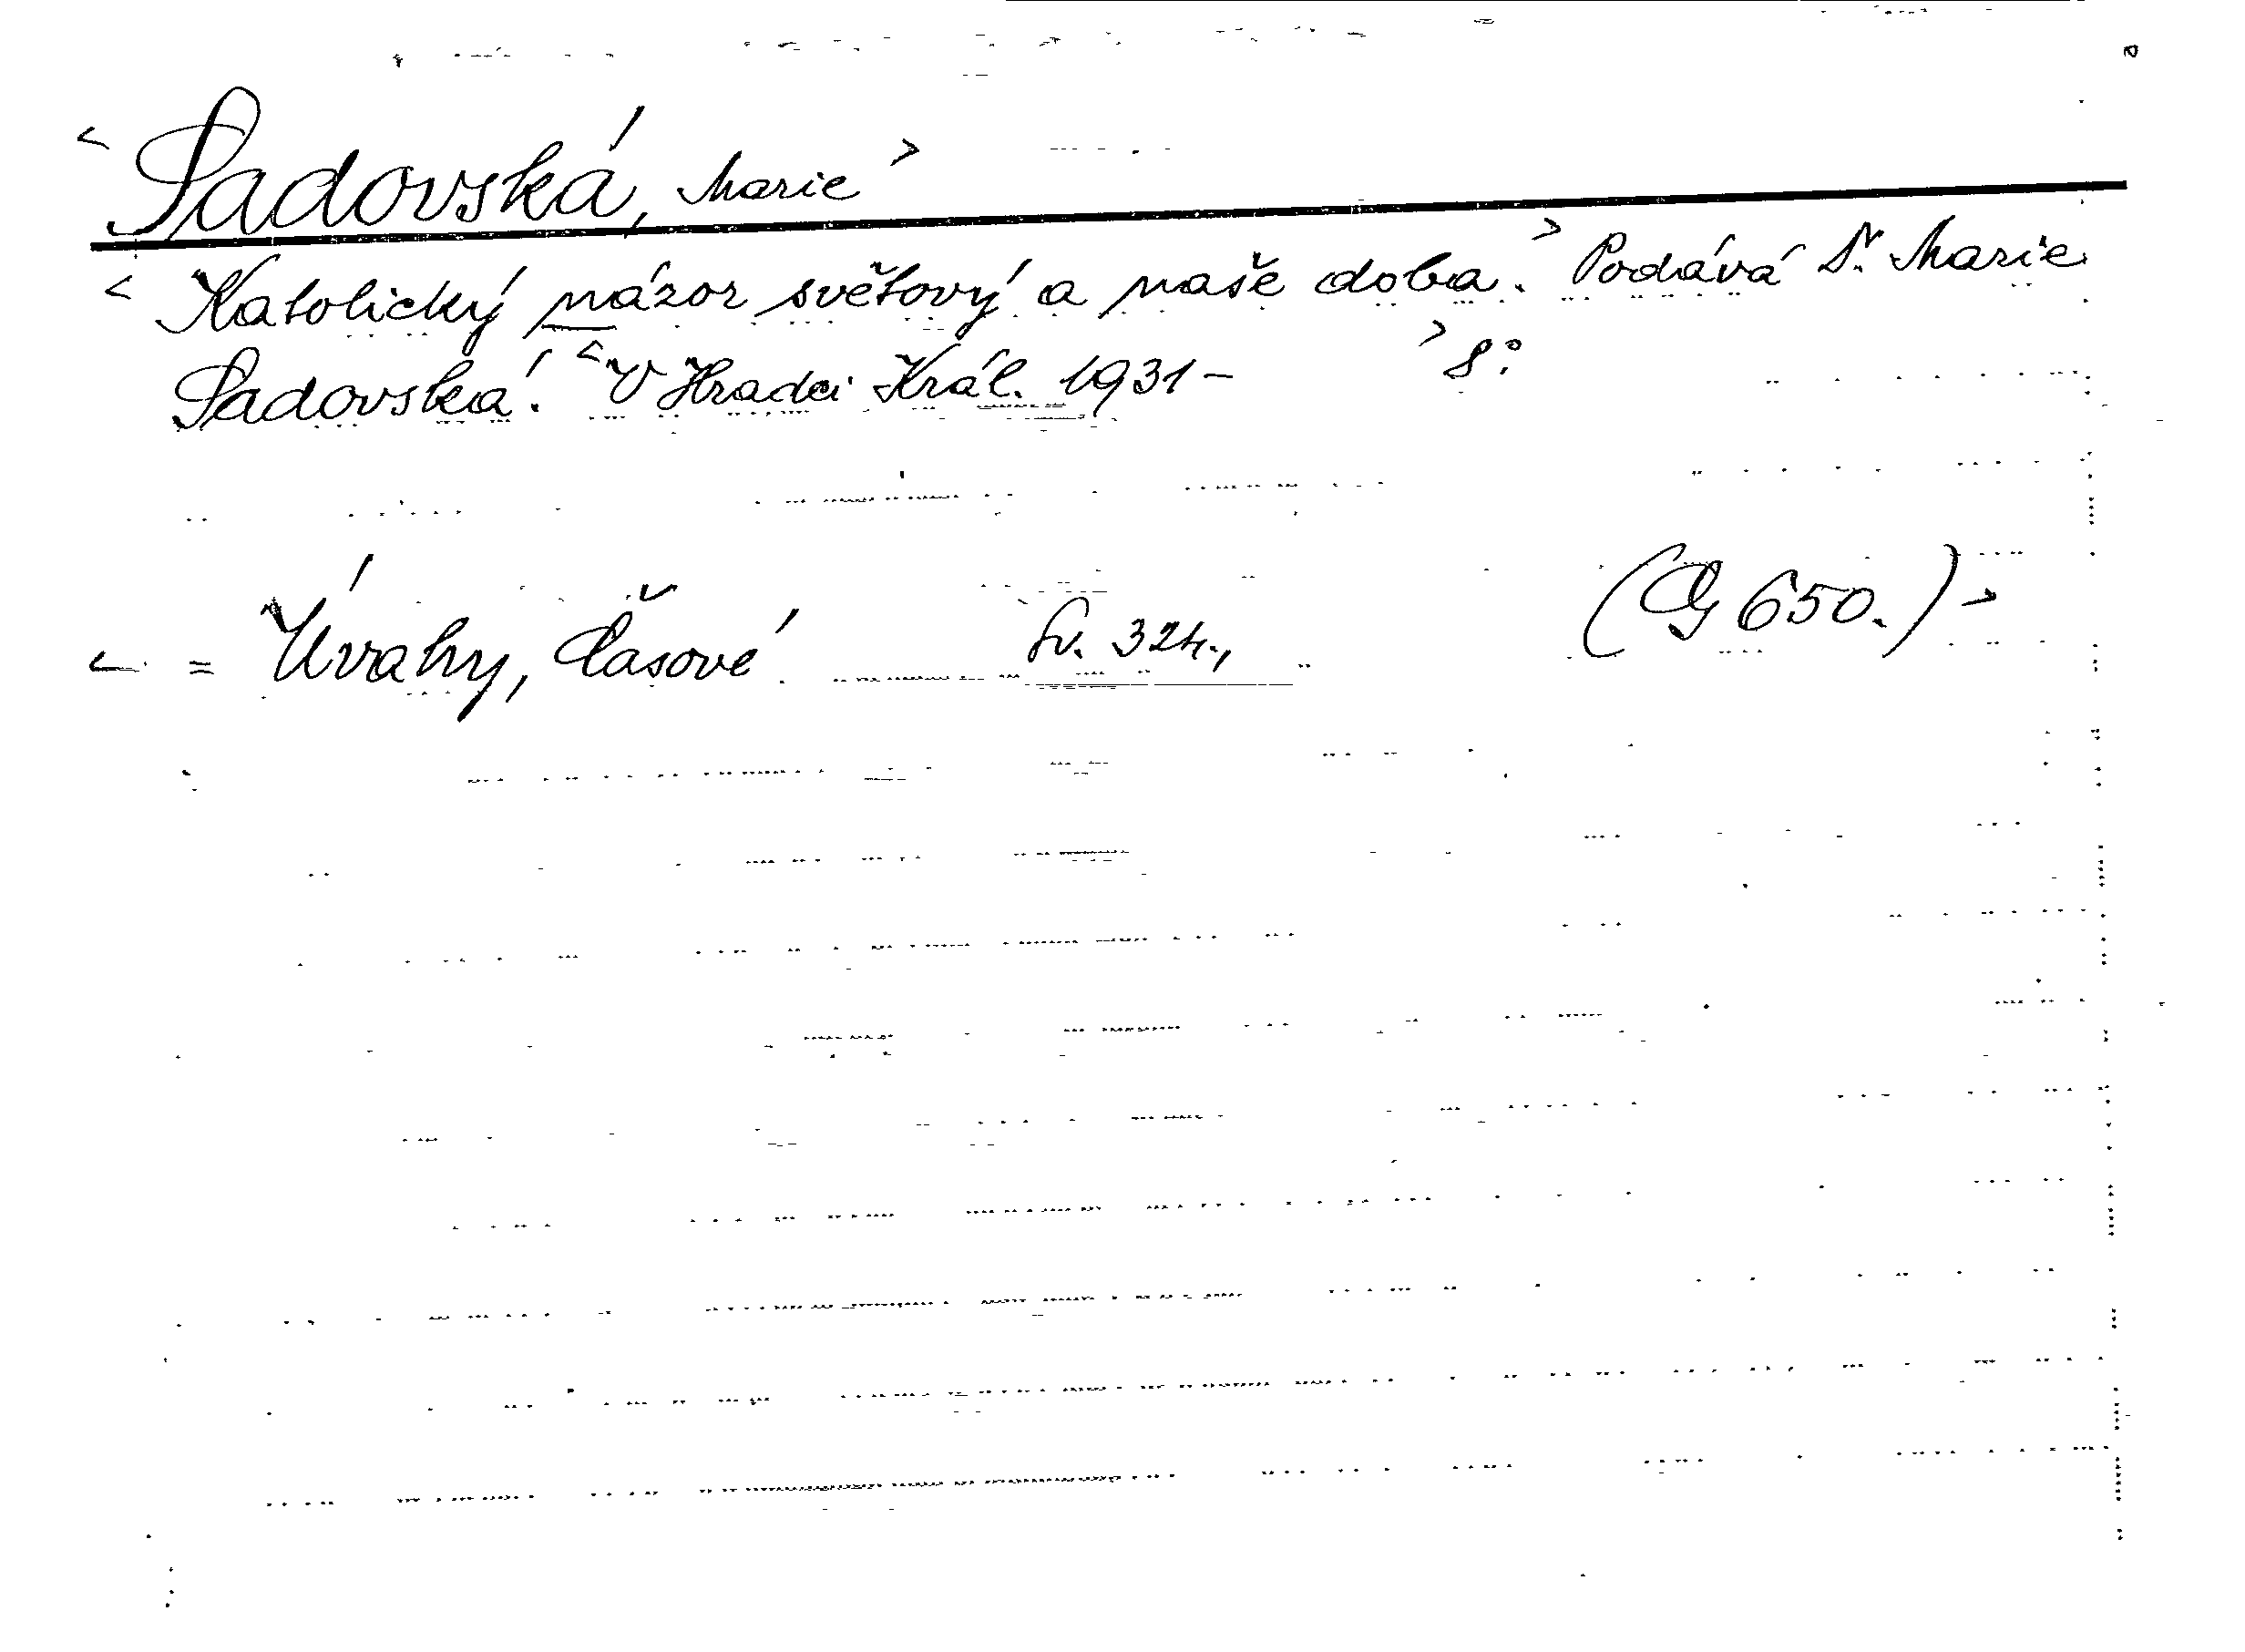 < Sadovská, Marie >
< Katolický názor světový a naše doba. > Podává Dr. Marie
Sadovská. < V Hradci Král. 1931 - > 8°.
< = Úvahy, Časové. Sv. 324., ( 650.) >